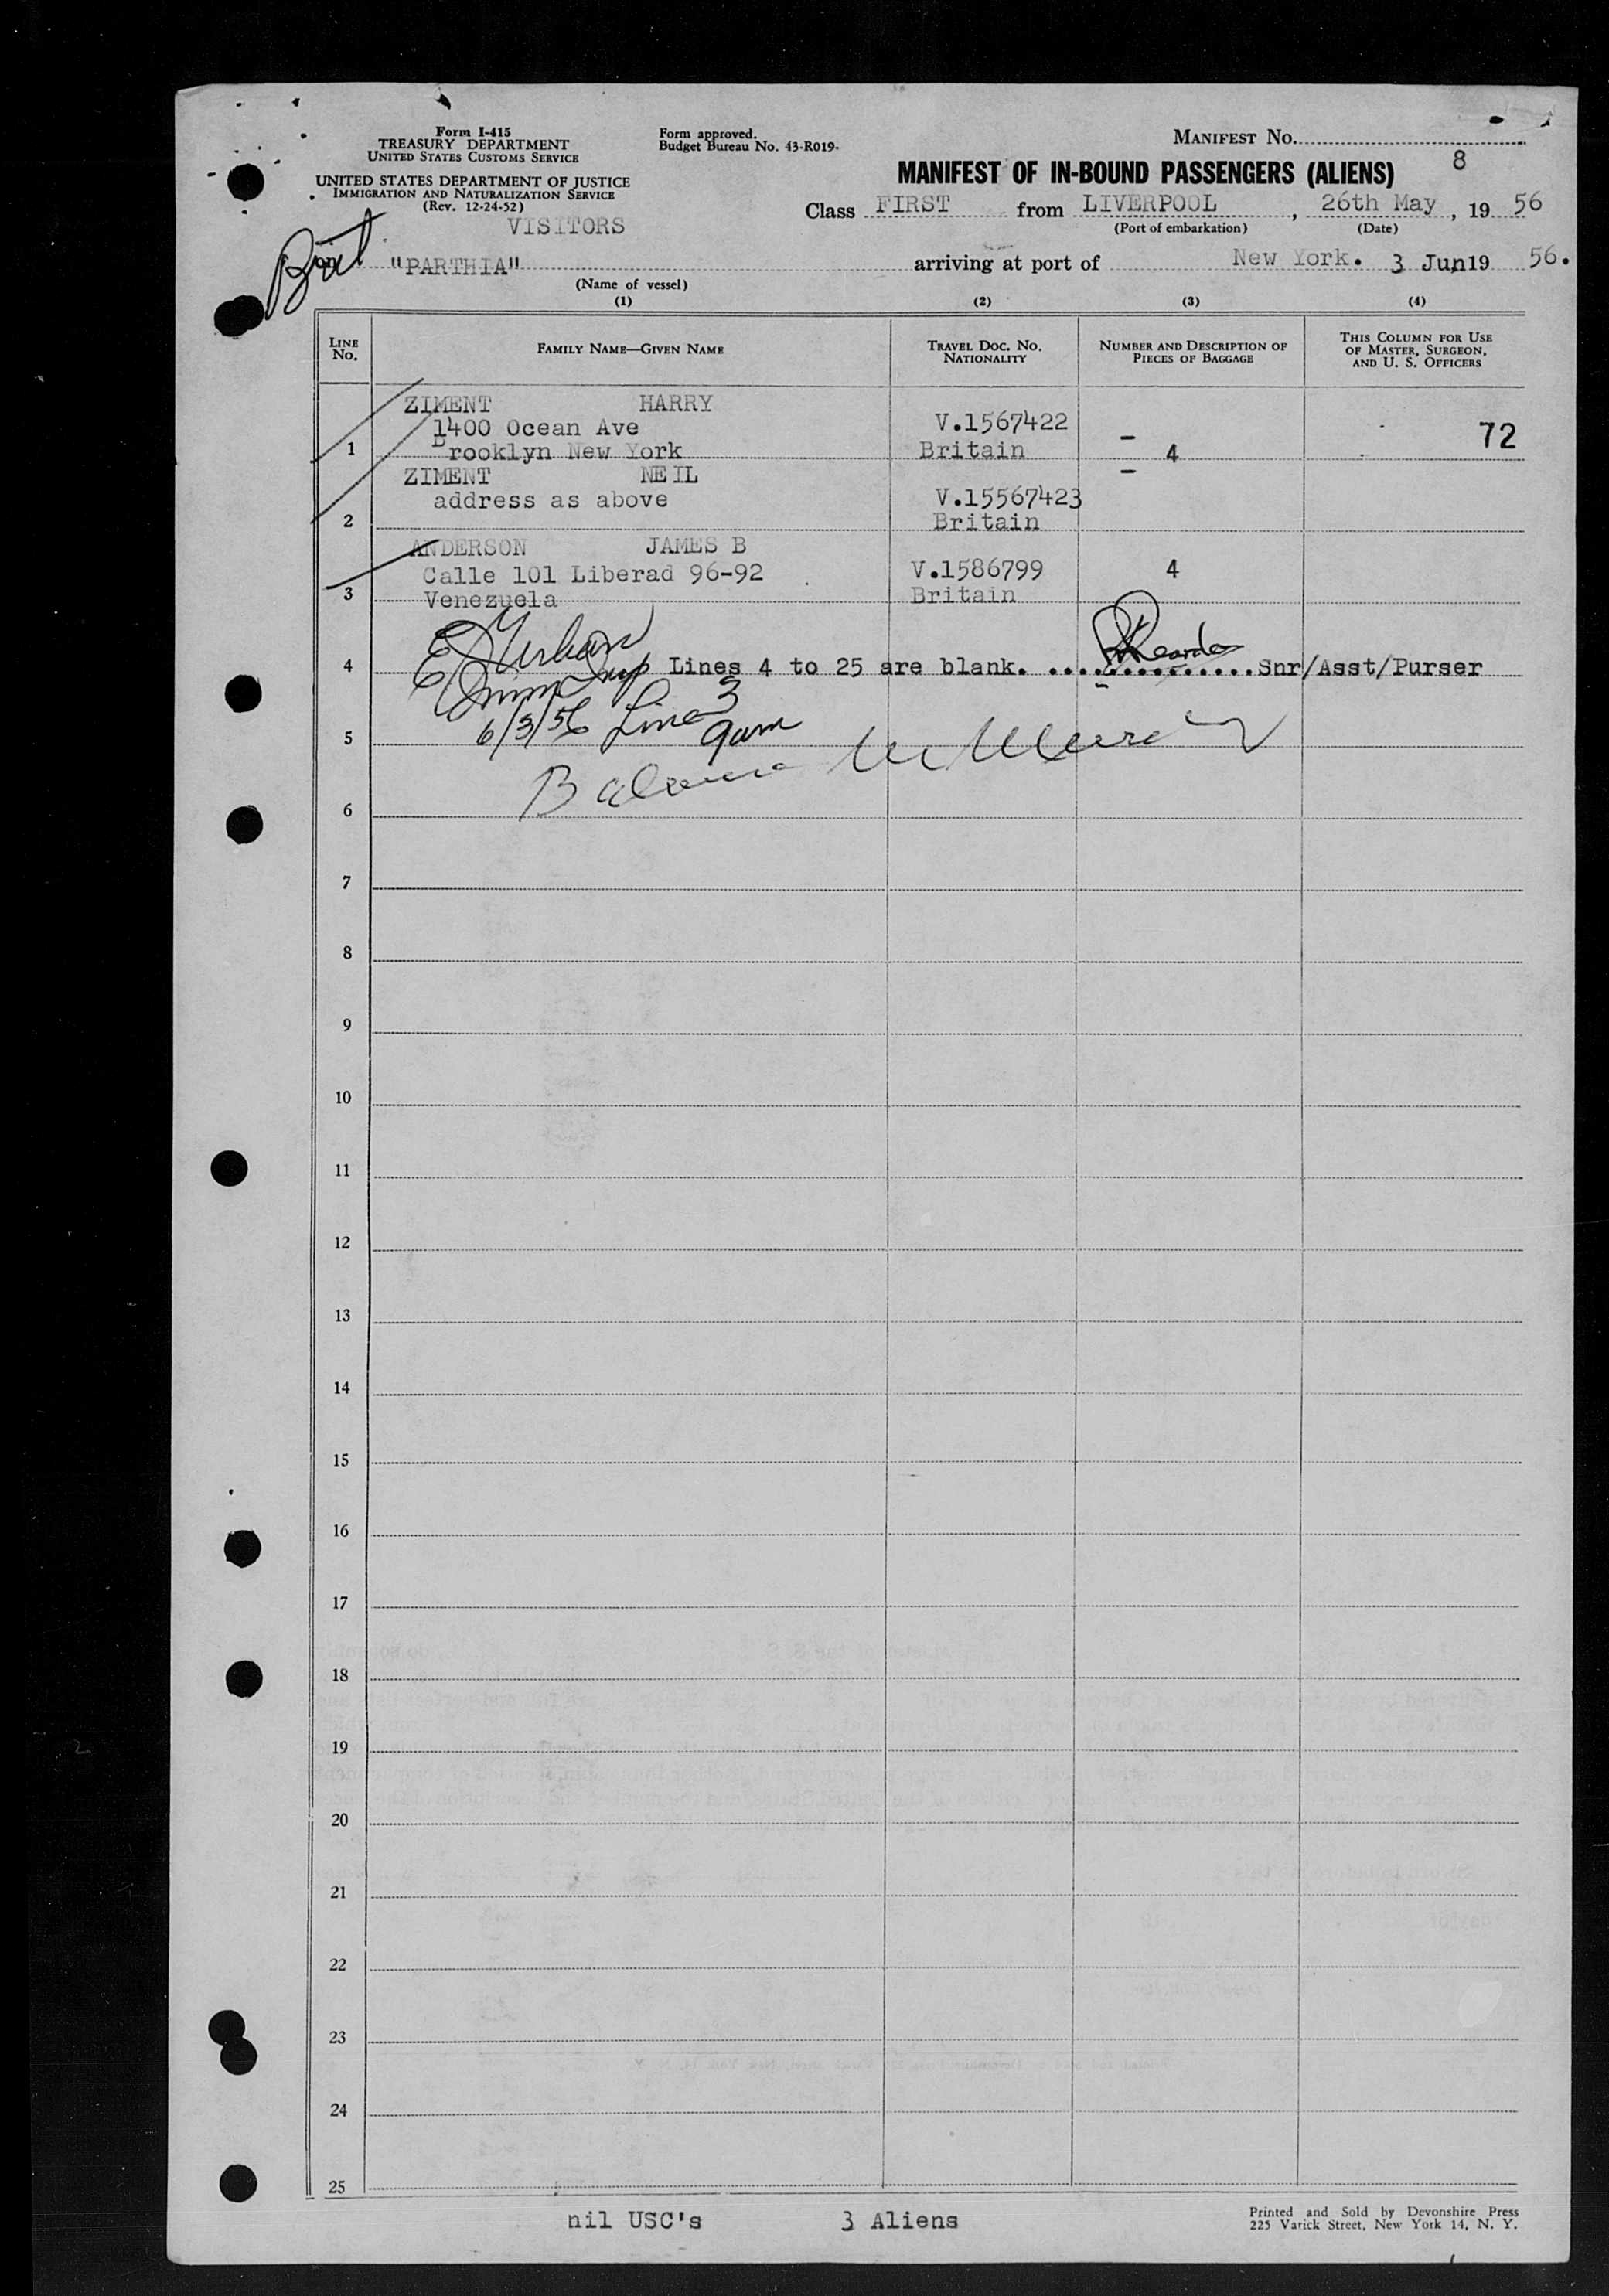 Form I-415
TREASURY DEPARTMENT
UNITED STATES CUSTOMS SERVICE
UNITED STATES DEPARTMENT OF JUSTICE
IMMIGRATION AND NATURALIZATION SERVICE
(Rev. 12-24-52)
Form approved.
Budget Bureau No. 43-R019-
MANIFEST No.
8
MANIFEST OF IN-BOUND PASSENGERS (ALIENS)
Class FIRST from LIVERPOOL, 26th May, 19 56
(Port of embarkation) (Date)
VISITORS
Brit
on "PARTHIA" arriving at port of New York. 3 Jun 19 56.
(Name of vessel)
(1) (2) (3) (4)
LINE No. FAMILY NAME—GIVEN NAME TRAVEL DOC. NO. NATIONALITY NUMBER AND DESCRIPTION OF PIECES OF BAGGAGE THIS COLUMN FOR USE OF MASTER, SURGEON, AND U. S. OFFICERS
ZIMENT HARRY
1400 Ocean Ave V.1567422 72
1 Brooklyn New York Britain 4
ZIMENT NEIL
address as above V.15567423
2 Britain
ANDERSON JAMES B
Calle 101 Liberad 96-92 V.1586799 4
3 Venezuela Britain
4 Lines 4 to 25 are blank. ...............Snr/Asst/Purser
6/3/56 Line 3
5
6
7
8
9
10
11
12
13
14
15
16
17
18
19
20
21
22
23
24
25
nil USC's 3 Aliens
Printed and Sold by Devonshire Press
225 Varick Street, New York 14, N. Y.